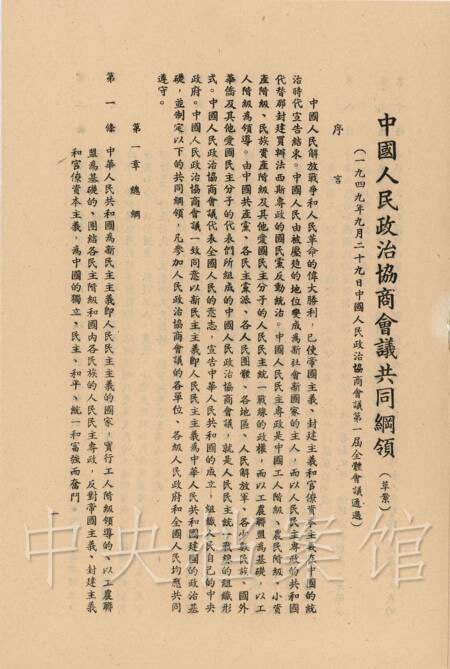 中國人民政治協商會議共同綱領（草案）
（一九四九年九月二十九日中國人民政治協商會議第一屆全體會議通過）
序　言
中國人民解放戰爭和人民革命的偉大勝利，已使帝國主義、封建主義和官僚資本主義在中國的統
治時代宣告結束。中國人民由被壓迫的地位變成為新社會新國家的主人，而以人民民主專政的共和國
代替那封建買辦法西斯專政的國民黨反動統治。中國人民民主專政是中國工人階級、農民階級、小資
產階級、民族資產階級及其他愛國民主分子的人民民主統一戰線的政權，而以工農聯盟為基礎，以工
人階級為領導。由中國共產黨、各民主黨派、各人民團體、各地區、人民解放軍、各少數民族、國外
華僑及其他愛國民主分子的代表們所組成的中國人民政治協商會議，就是人民民主統一戰線的組織形
式。中國人民政治協商會議代表全國人民的意志，宣告中華人民共和國的成立，組織人民自己的中央
政府。中國人民政治協商會議一致同意以新民主主義即人民民主主義為中華人民共和國建國的政治基
礎，並制定以下的共同綱領，凡參加人民政治協商會議的各單位、各級人民政府和全國人民均應共同
遵守。
第一章　總綱
第一條　中華人民共和國為新民主主義即人民民主主義的國家，實行工人階級領導的、以工農聯
盟為基礎的、團結各民主階級和國內各民族的人民民主專政，反對帝國主義、封建主義
和官僚資本主義，為中國的獨立、民主、和平、統一和富強而奮鬥。
一
中央档案馆